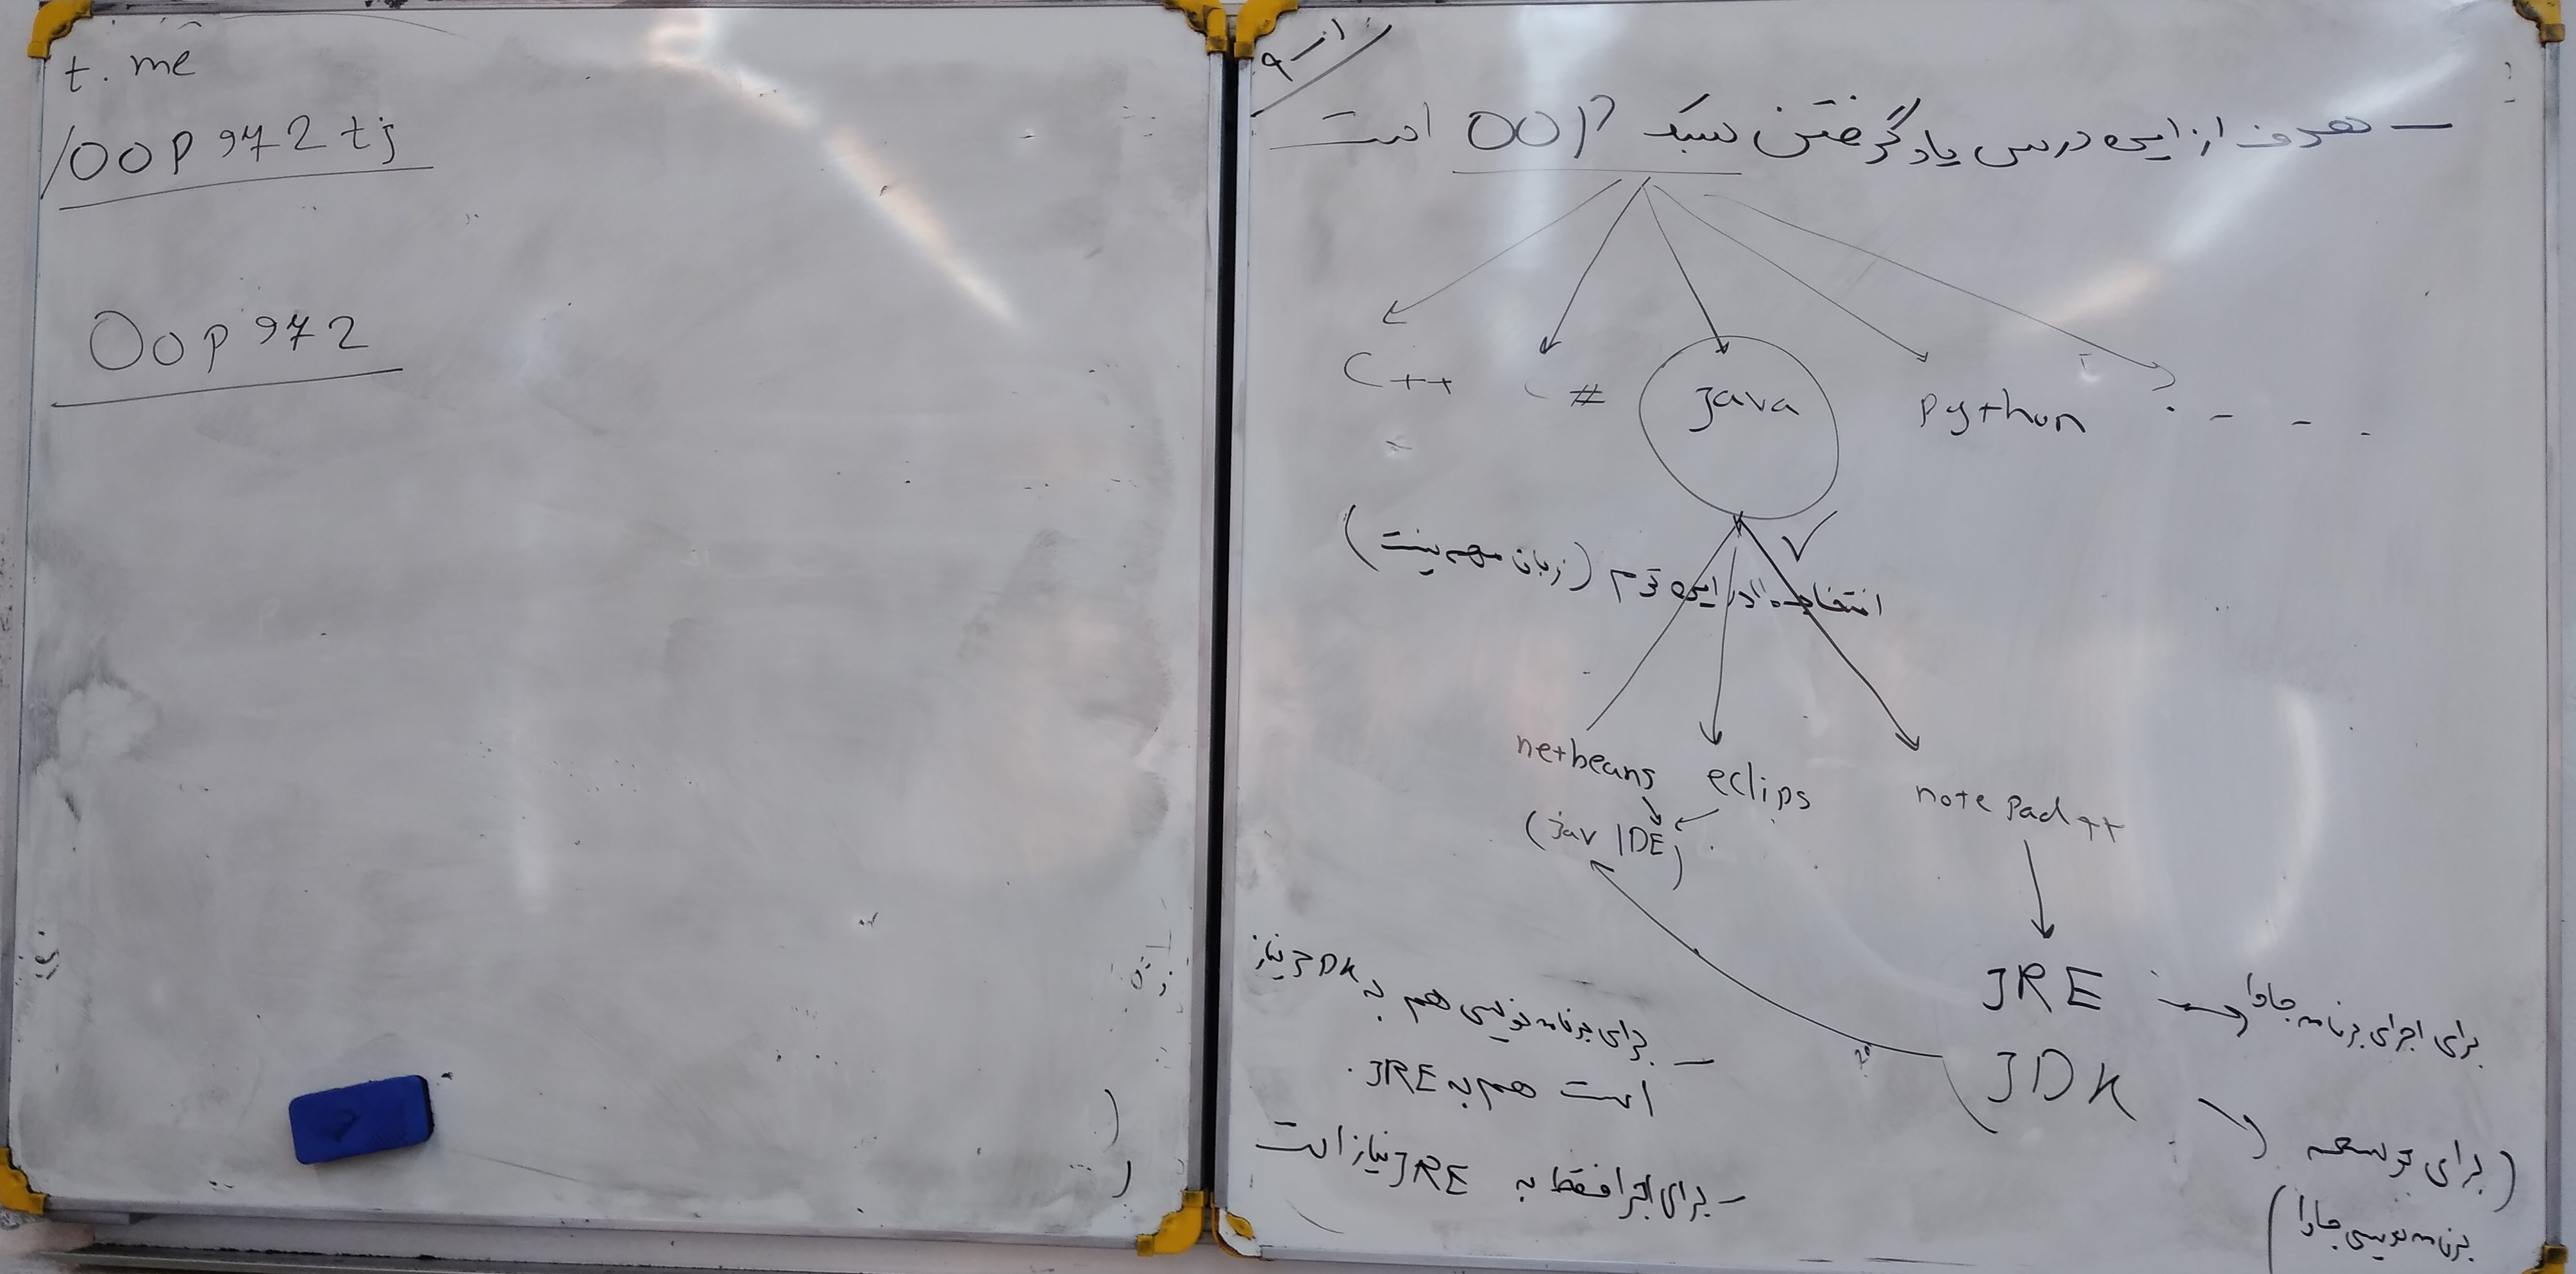 t. me
/OOP 972 tj
OOP 972
- هدف از این درس یادگرفتن سبک OOP است
C++ C# Java Python ? - - -
انتخاب ما در این ترم (زبان مهم نیست)
netbeans eclips note Pad ++
(Jav IDE)
JRE → برای اجرای برنامه جاوا
JDK → (برای توسعه
برنامه نویسی جاوا)
- برای برنامه نویسی هم به JDK نیاز
است هم به JRE.
- برای اجرا فقط به JRE نیاز است